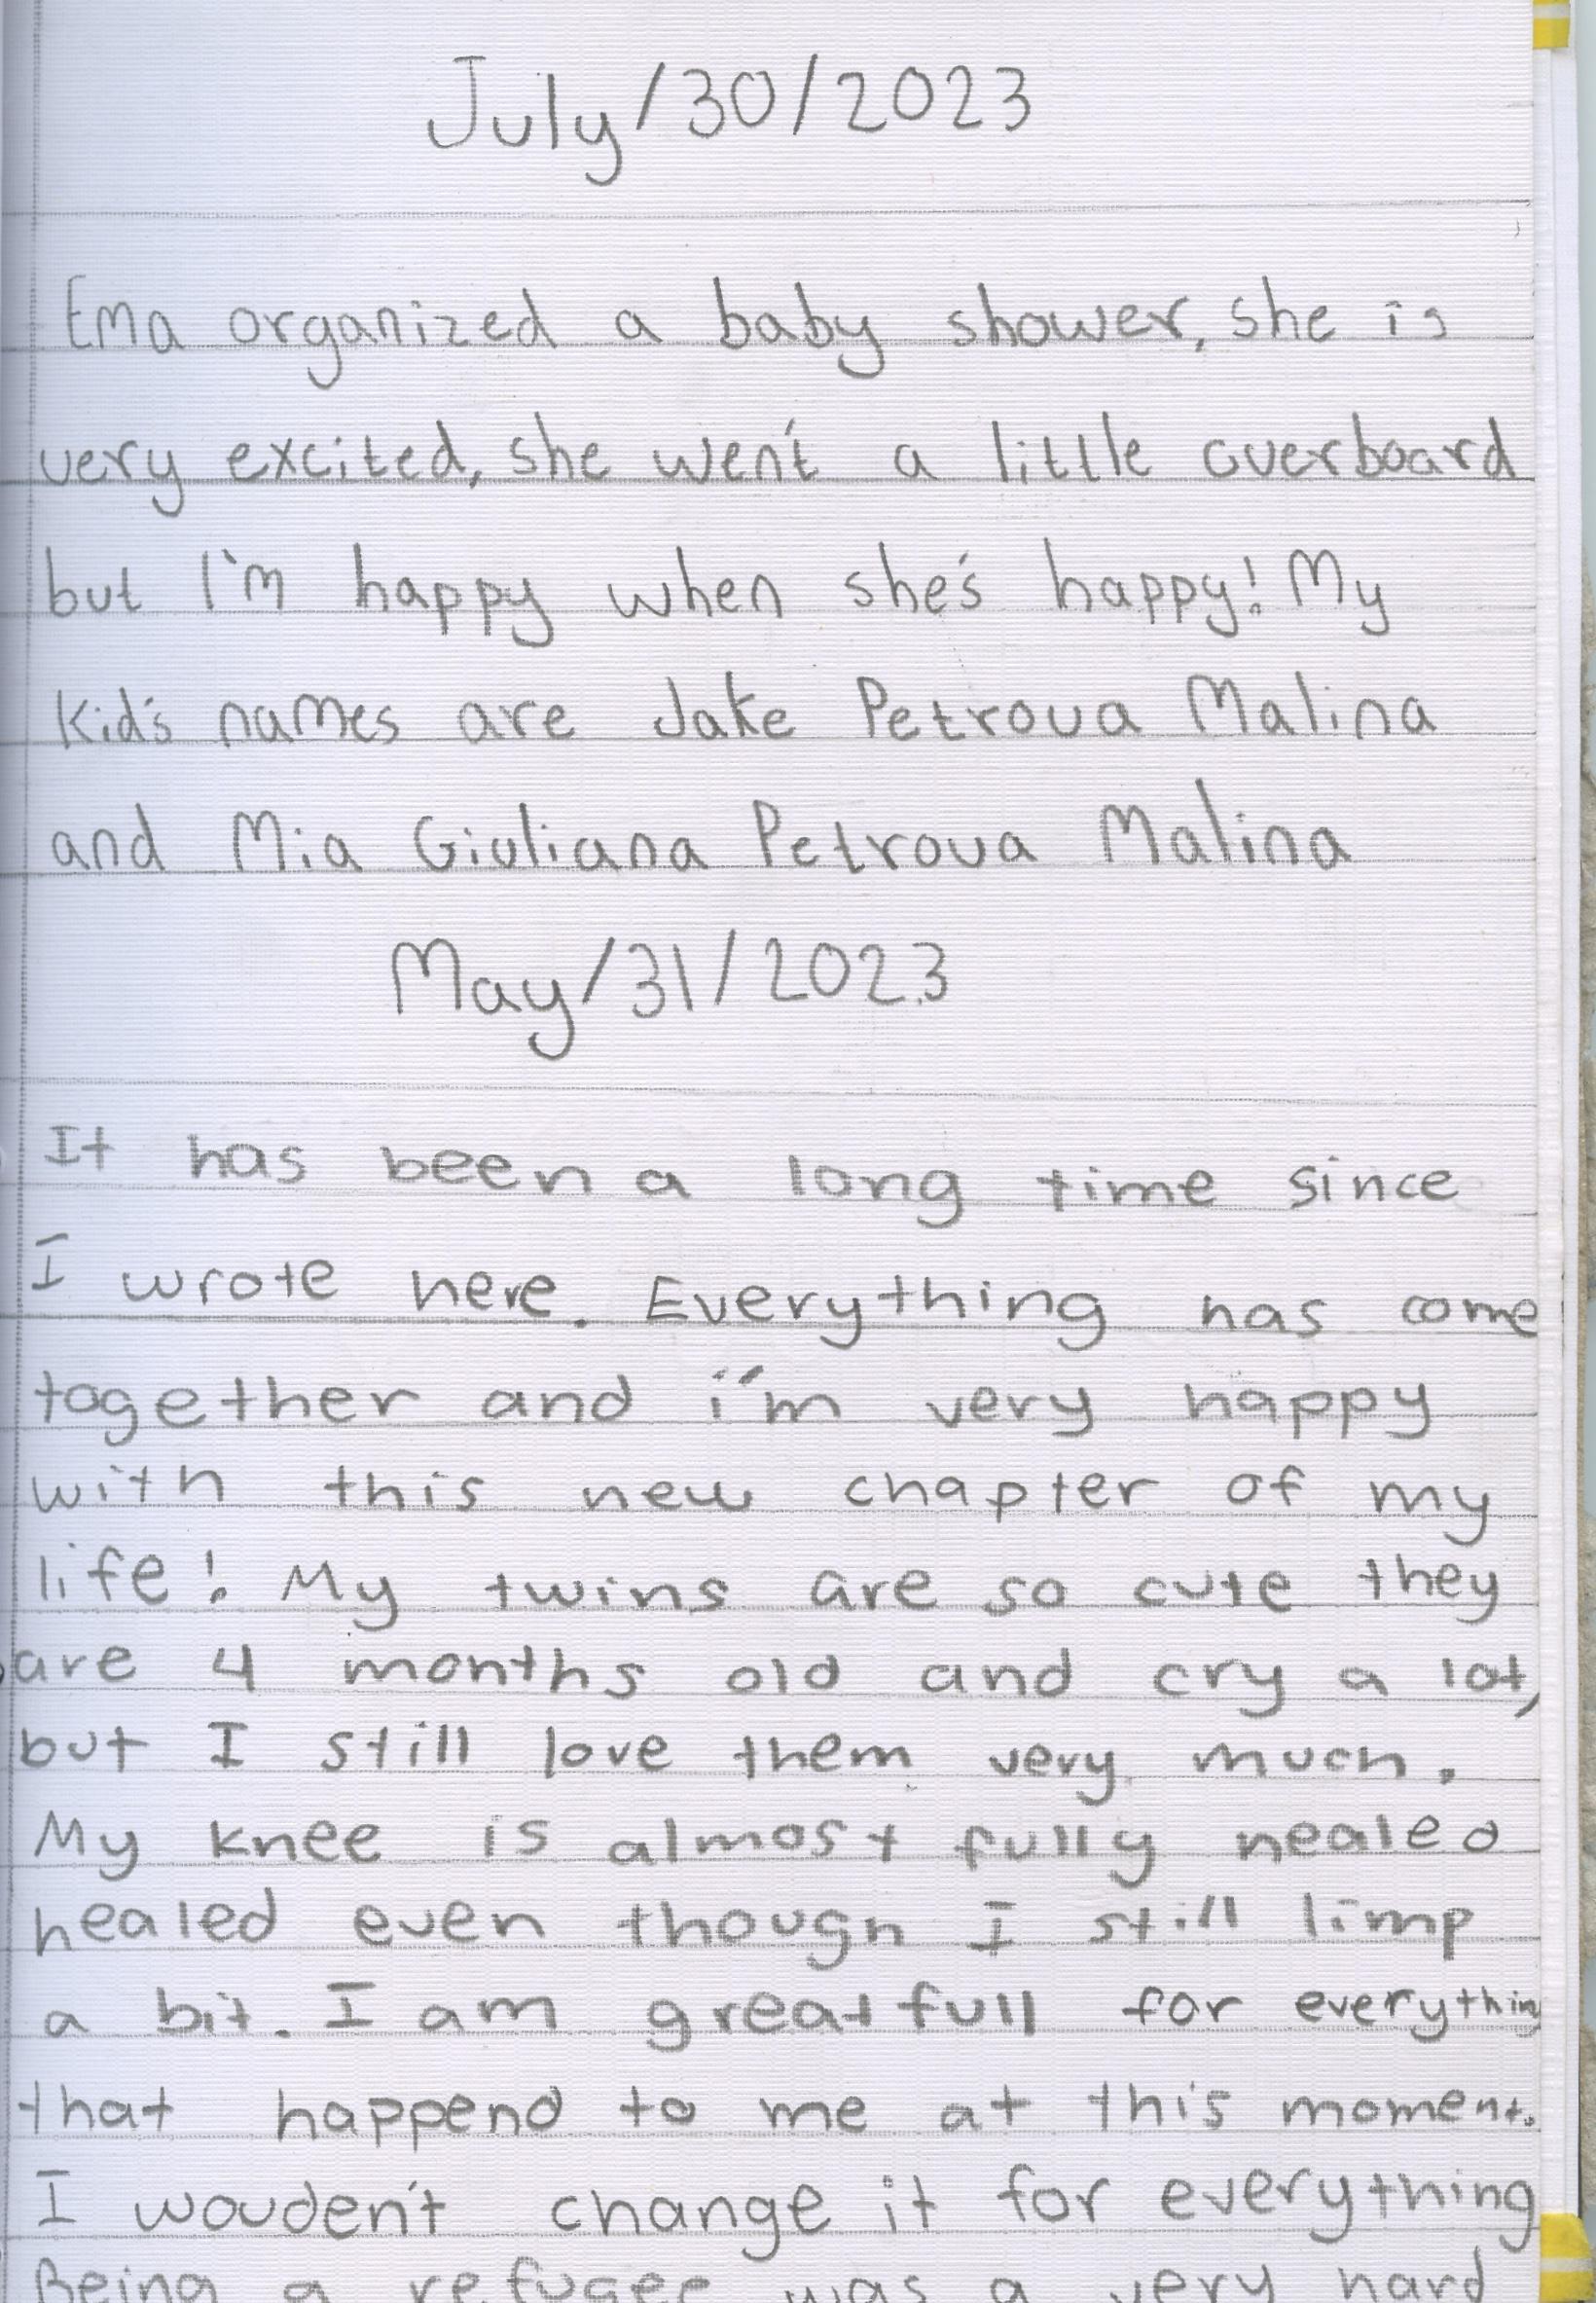 July/30/2023
Ema organized a baby shower, she is
very excited, she wen't a little overboard
but I'm happy when she's happy! My
Kid's names are Jake Petrova Malina
and Mia Giuliana Petrova Malina
May/31/2023
It has been a long time since
I wrote here. Everything has come
together and i'm very happy
with this new chapter of my
life! My twins are so cute they
are 4 months old and cry a lot,
but I still love them very much.
My knee is almost fully healed
healed even though I still limp
a bit. I am greatfull for everything
that happend to me at this moment.
I wouden't change it for everything
Being a refugee was a very hard